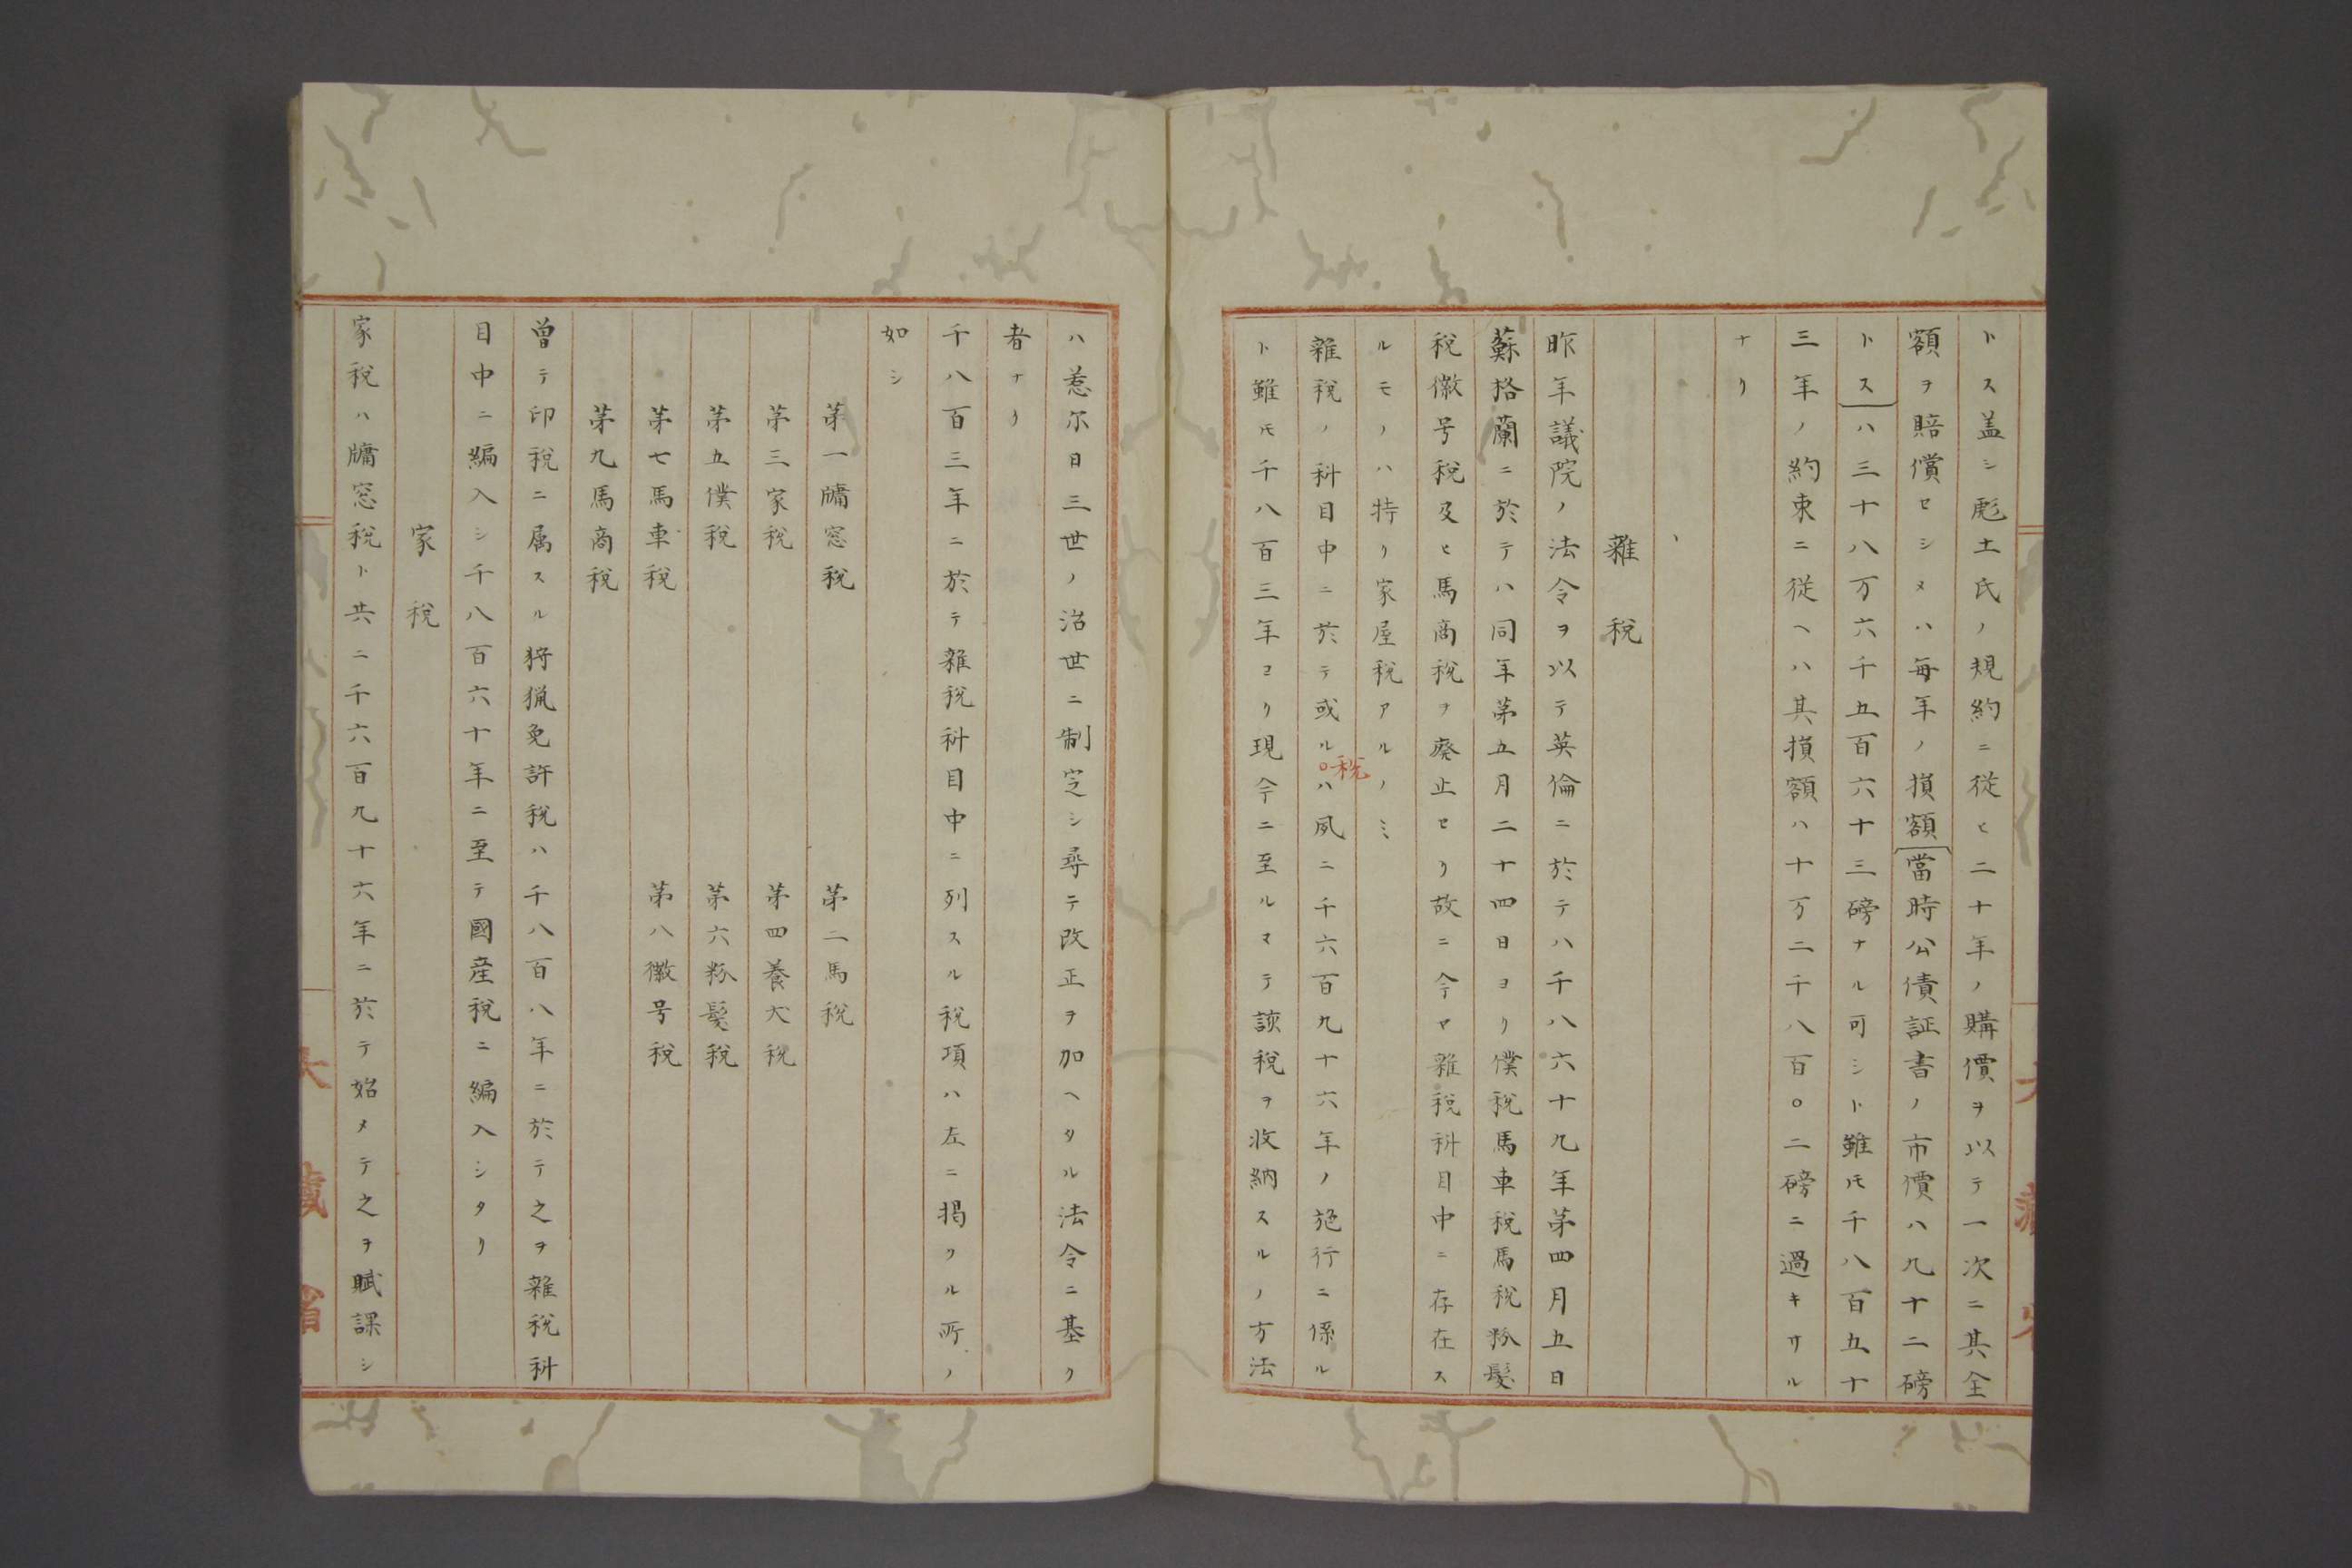 トス盖シ彪土氏ノ規約ニ従ヒ二十年ノ購價ヲ以テ一次ニ其全
額ヲ賠償セシメハ毎年ノ損額﹇當時公債証書ノ市價ハ九十二磅
トス﹈ハ三十八万六千五百六十三磅ナル可シト雖𪜈千八百五十
三年ノ約束ニ従ヘハ其損額ハ十万二千八百〇二磅ニ過キサル
ナリ
雜税
昨年議院ノ法令ヲ以テ英倫ニ於テハ千八六十九年第四月五日
蘇格蘭ニ於テハ同年第五月二十四日ヨリ僕税馬車税馬税粉髮
税徽号税及ヒ馬商税ヲ廢止セリ故ニ今ヤ雜税科目中ニ存在ス
ルモノハ特リ家屋税アルノミ
雜税ノ科目中ニ於テ或ル〇税ハ夙ニ千六百九十六年ノ施行ニ係ル
ト雖𪜈千八百三年ヨリ現今ニ至ルマテ該税ヲ收納スルノ方法
ハ惹尓日三世ノ治世ニ制定シ尋テ改正ヲ加ヘタル法令ニ基ク
者ナリ
千八百三年ニ於テ雜税科目中ニ列スル税項ハ左ニ掲クル所ノ
如シ
第一牖窓税 第二馬税
第三家税 第四養犬税
第五僕税 第六粉髮税
第七馬車税 第八徽号税
第九馬商税
曽テ印税ニ属スル狩猟免許税ハ千八百八年ニ於テ之ヲ雜税科
目中ニ編入シ千八百六十年ニ至テ國産税ニ編入シタリ
家税
家税ハ牖窓税ト共ニ千六百九十六年ニ於テ始メテ之ヲ賦課シ
大藏省